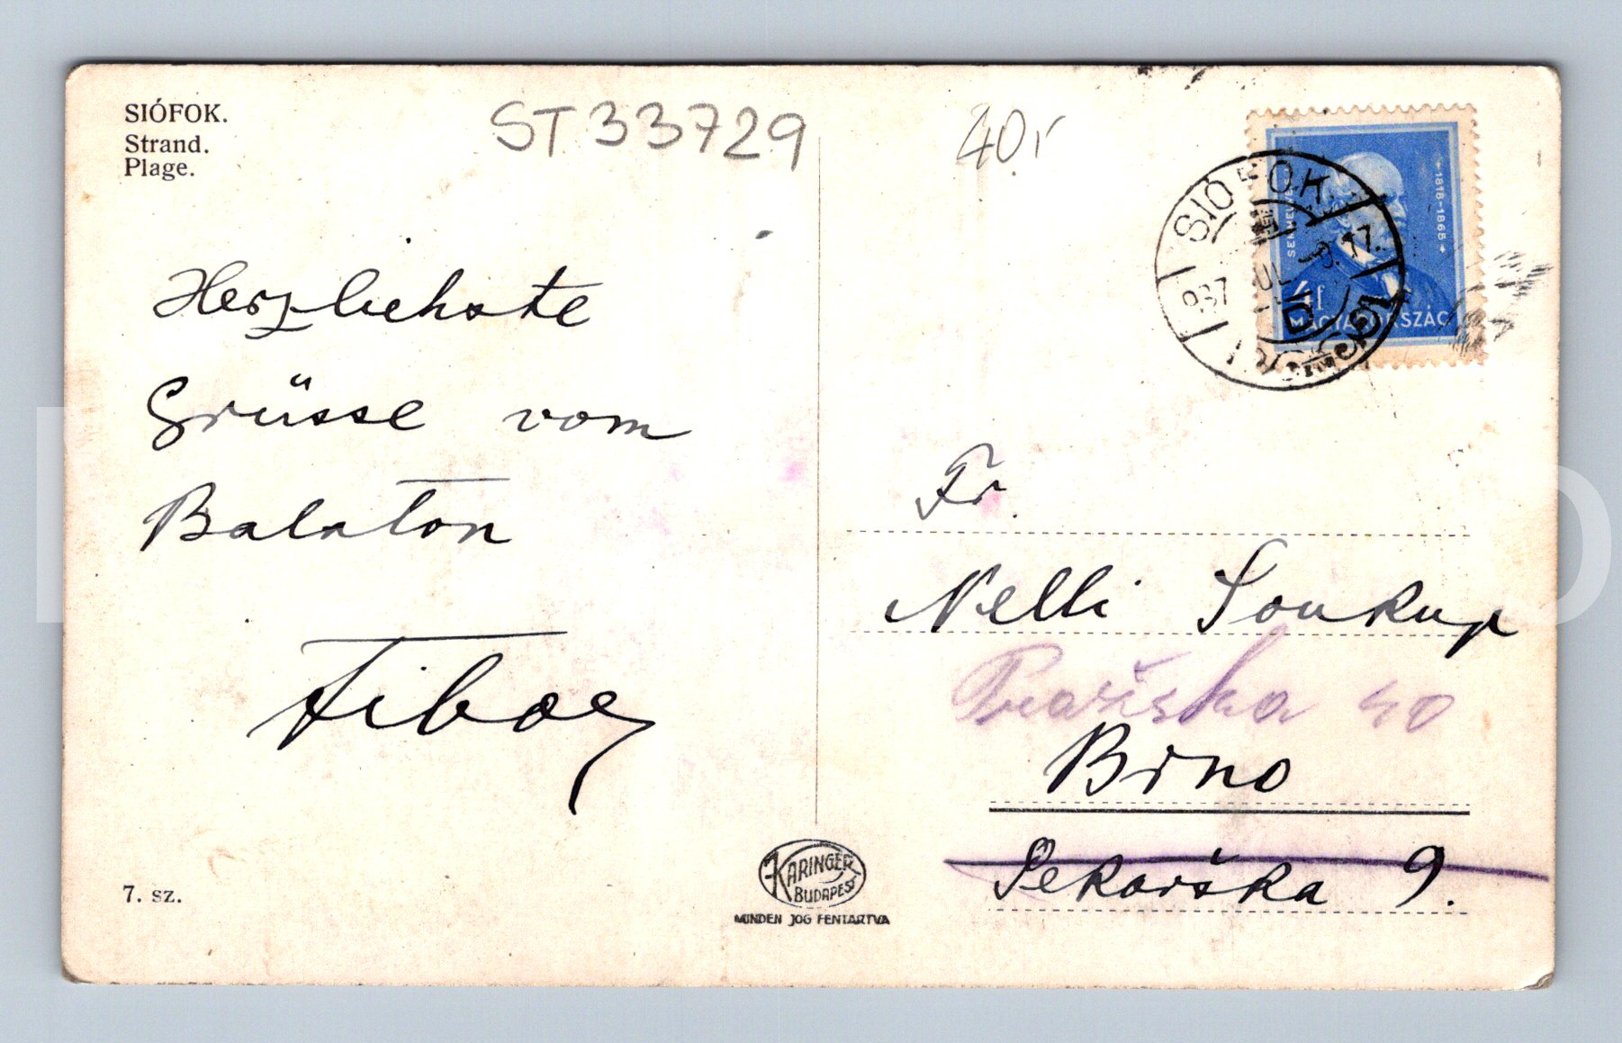 SIÓFOK.
Strand.
Plage.
ST 33729
40.
Herzlichste
Grüsse vom
Balaton
Tibor
7. sz.
KARINGER
BUDAPEST
MINDEN JOG FENTARTVA
SIÓFOK
937 JUL 17.
1818-1865
4f
MAGYARORSZÁG
Fr.
Nelli Soukup
Pražska 40
Brno
Pekařska 9.